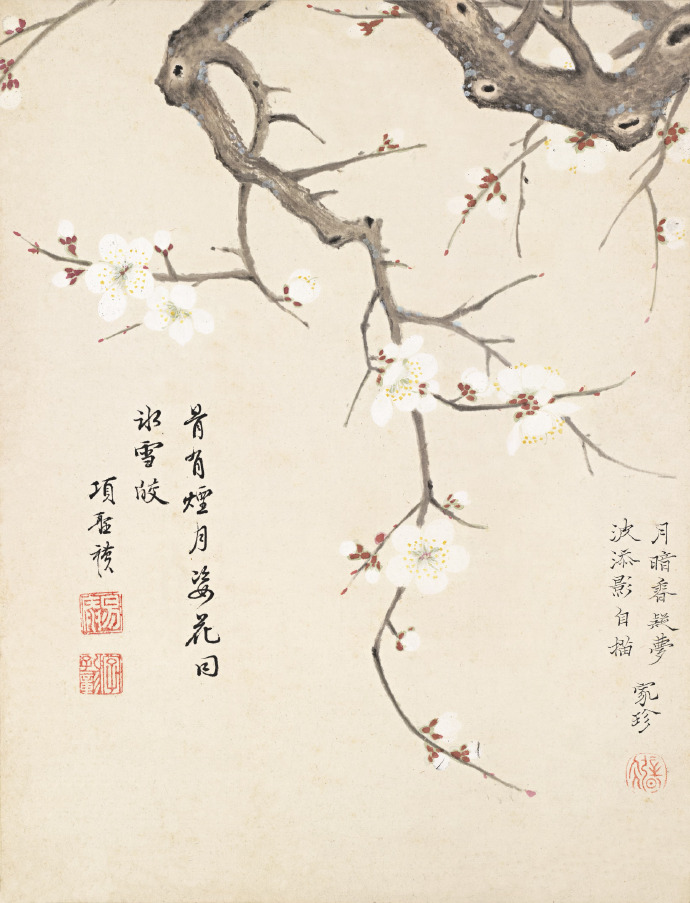 月暗香凝夢
波添影自描
家珍
骨有煙月姿花同
冰雪皎
項聖